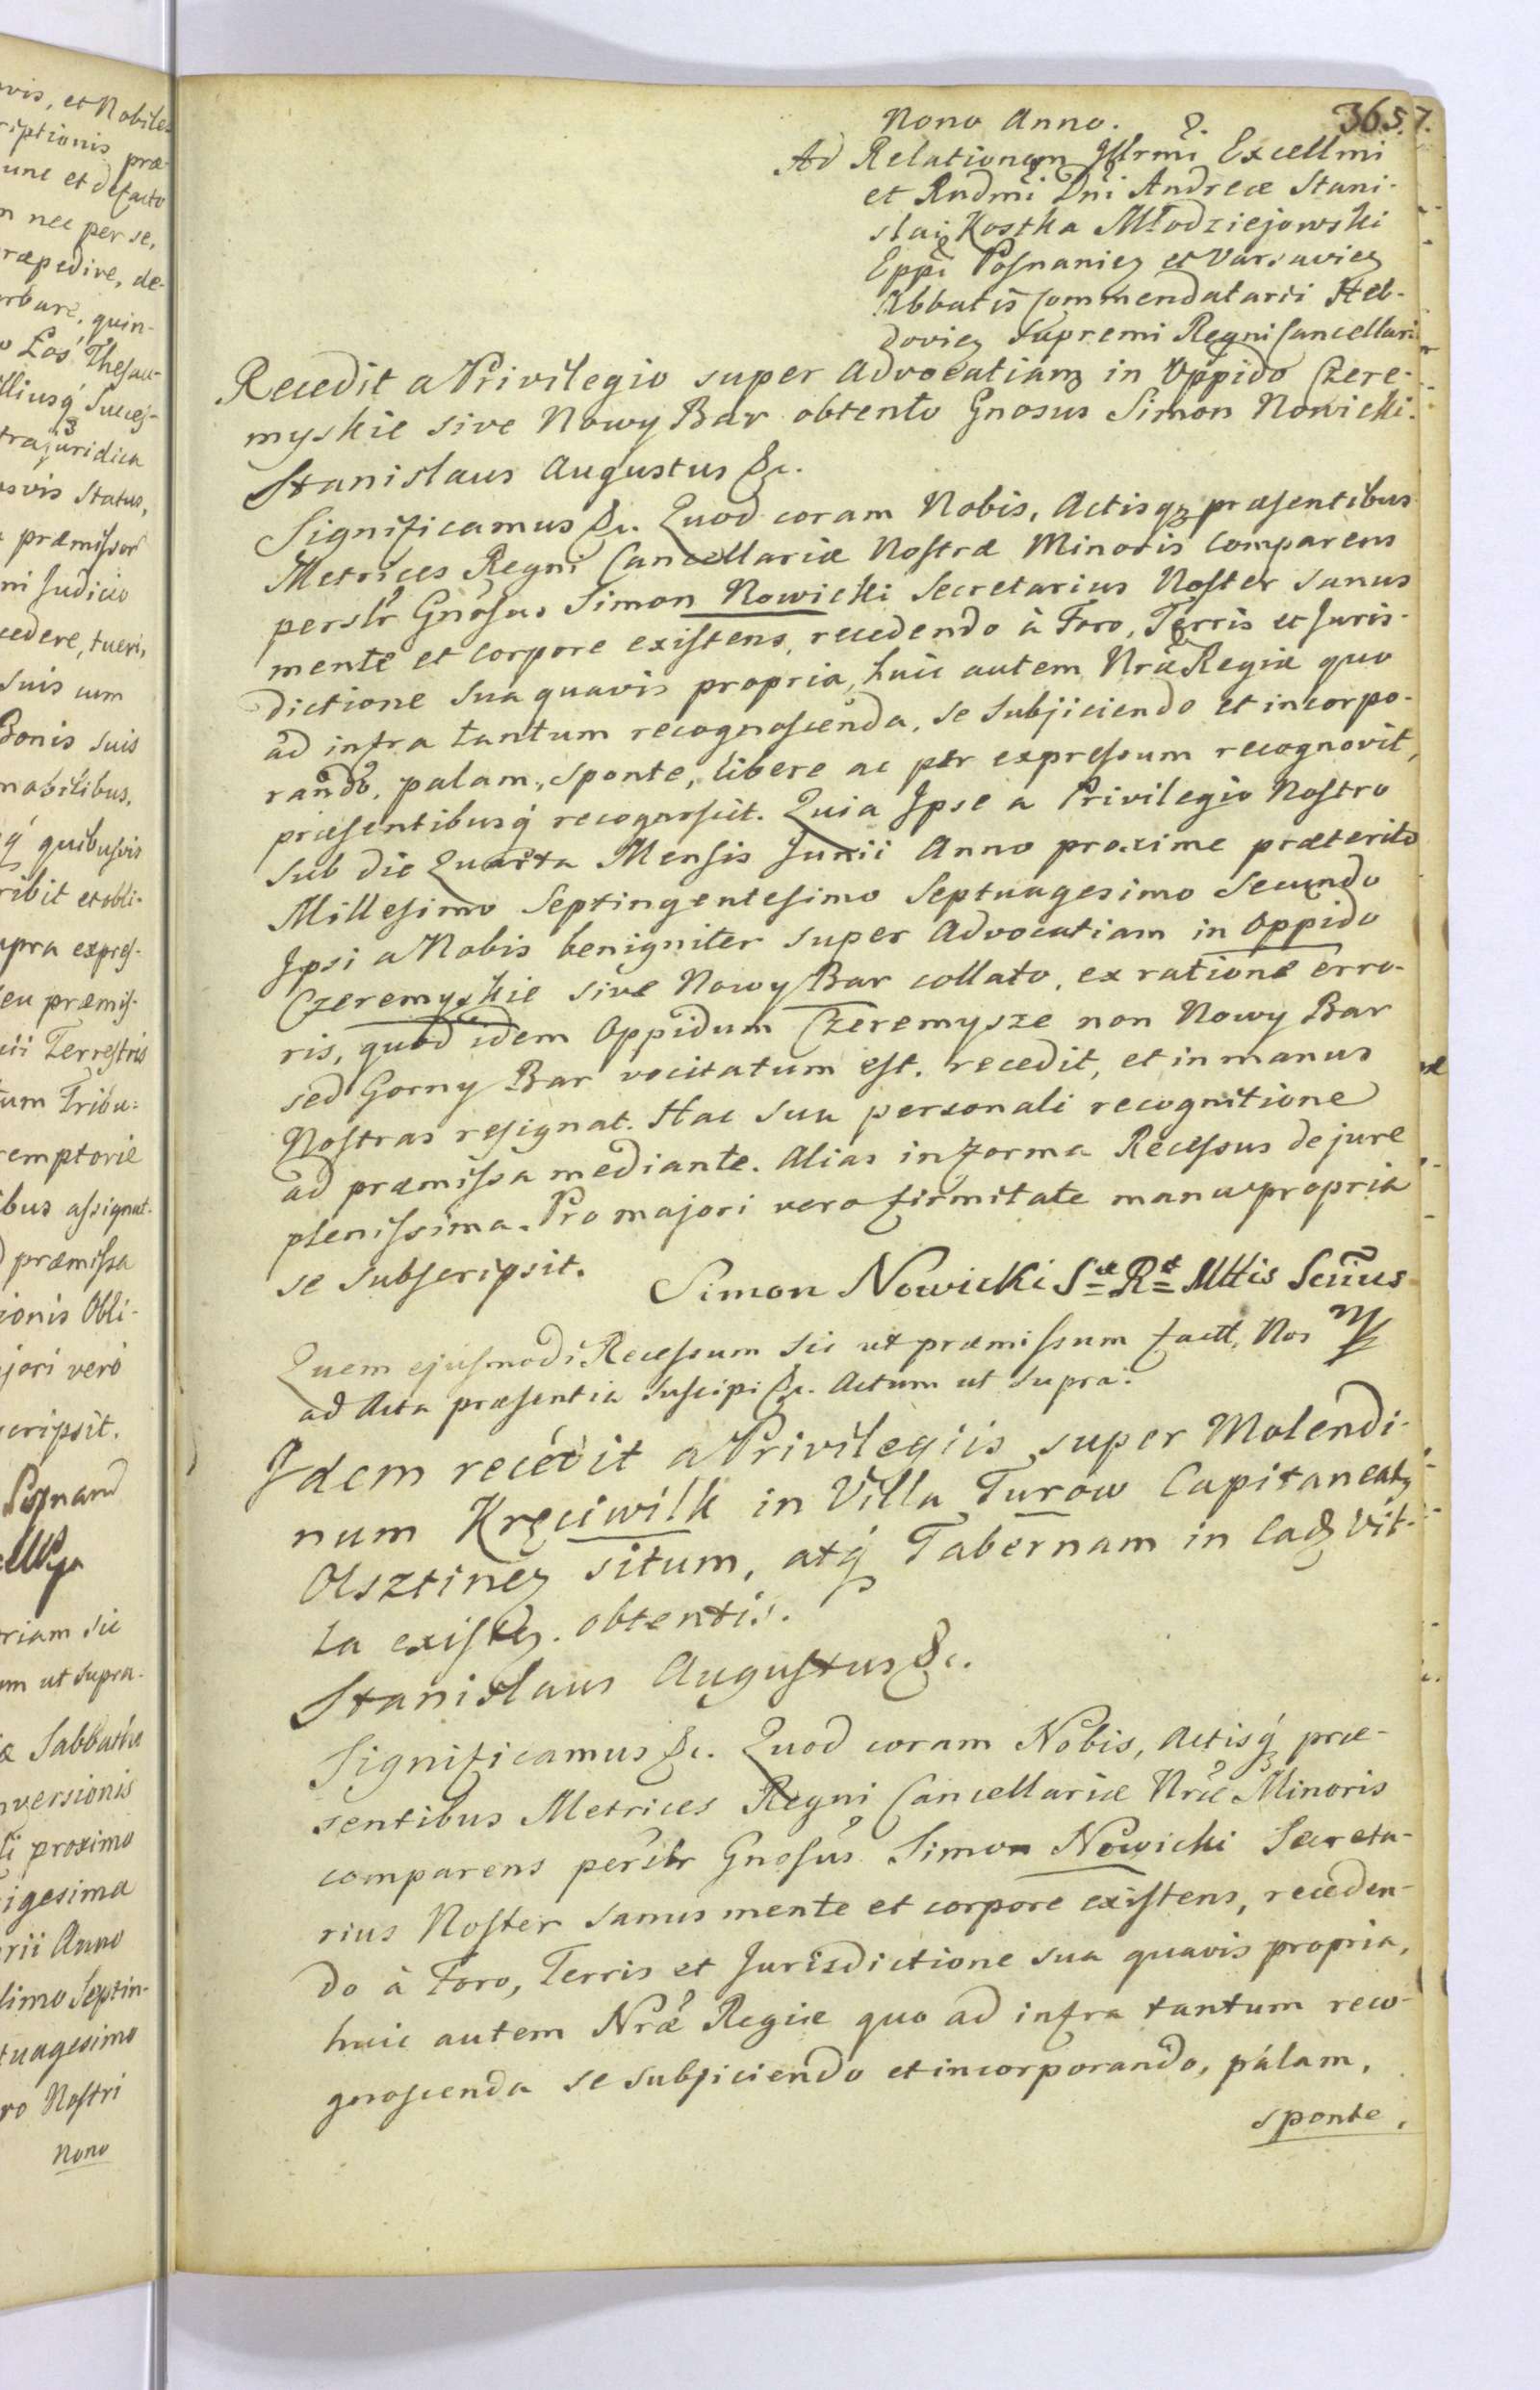 vis, et Nobiles
riptionis præ-
unc et defacto
n nec per se,
ræpedire, de-
rbare, quin-
Łoś Thesau-
lliusq́ Succes-
trajuridica
osvis Status,
præmissor
ni Judicio
cedere, tueri,
suis cum
Bonis suis
mobilibus,
q́ quibusvis
ribit et obli-
upra expres-
eu præmis-
cii Terrestris
um Tribu-
emptorie
ibus assignat.
præmissa
ionis Obli-
jori verò
scripsit.
riam sic
um ut supra.
æ Sabbatho
nversionis
li proximo
igesima
rii Anno
limo Septin-
tuagesimo
ro Nostri
nono
Nono Anno. 365. 7.
Ad Relationem Illrmi Excellmi
et Rndmi Dni Andreæ Stani-
slai Kostka Młodziejowski
Eppi Posnaniez et Varsaviez
Abbatis Commendatarii Heb-
doviez Supremi Regni Cancellarii
Recedit a Privilegio super Advocatiam in Oppido Czere-
myskie sive Nowy Bar obtento Gnosus Simon Nowicki.
Stanislaus Augustus &c.
Significamus &c. Quod coram Nobis, Actisqz præsentibus
Metrices Regni Cancellariæ Nostræ Minoris Comparens
perslr Gnosus Simon Nowicki Secretarius Noster sanus
mente et corpore existens, recedendo à Foro, Terris et Juris-
dictione sua quavis propria, huic autem Nræ Regiæ quo
ad infra tantum recognoscenda, se subjiciendo et incorpo-
rando, palam, sponte, libere ac per expressum recognovit,
præsentibusq́ recognoscit. Quia Ipse a Privilegio Nostro
sub die Quarta Mensis Junii Anno proxime præterito
Millesimo Septingentesimo Septuagesimo Secundo
Ipsi a Nobis benigniter super Advocatiam in Oppido
Czeremyskie sive Nowy Bar collato, ex ratione erro-
ris, quod idem Oppidum Czeremysze non Nowy Bar
sed Gorny Bar vocitatum est. recedit, et in manus
Nostras resignat. Hac sua personali recognitione
ad præmissa mediante. Alias in forma Recessus de jure
plenissima. Pro majori vero firmitate manu propria
se subscripsit. Simon Nowicki Sæ Ræ Mttis Scrius
mp
Quem ejusmodi Recessum sic ut præmissum factt, Nos
ad Acta præsentia suscipi &c. Actum ut supra.
Idem recedit a Privilegiis super Molendi-
num Kręciwilk in Villa Turow Capitaneatz
Olsztinez situm, atq́ Tabernam in eadz Vil-
la existz. obtentis.
Stanislaus Augustus &c.
Significamus &c. Quod coram Nobis, Actisq́ præ-
sentibus Metrices Regni Cancellariæ Nræ Minoris
comparens perslr Gnosus Simon Nowicki Secreta-
rius Noster sanus mente et corpore existens, receden-
do à Foro, Terris et Jurisdictione sua quavis propria,
huic autem Nræ Regiæ quo ad infra tantum reco-
gnoscenda se subjiciendo et incorporando, palam,
sponte,